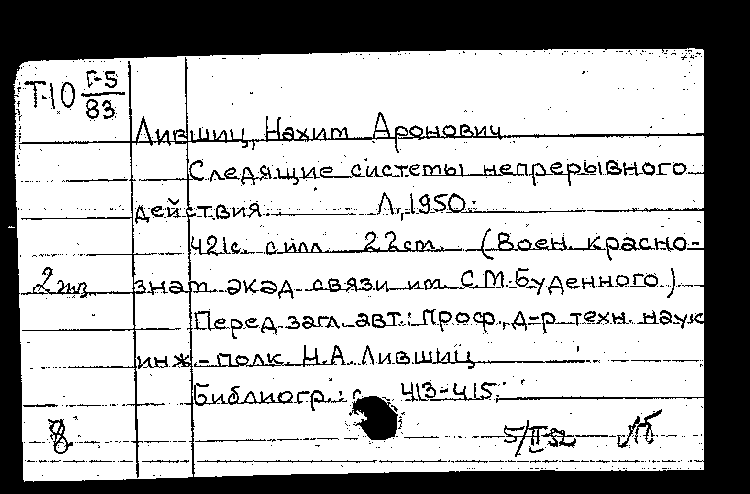 Т-10 Г-5
83
Лившиц, Нахим Аронович
Следящие системы непрерывного
действия. Л., 1950.
421с. с илл. 22см. (Воен. красно-
2 экз. знам. акад. связи им. С.М. Буденного)
Перед загл. авт.: Проф., д-р техн. наук
инж-полк. Н.А. Лившиц
Библиогр.: с. 413-415.
8 5/II 52